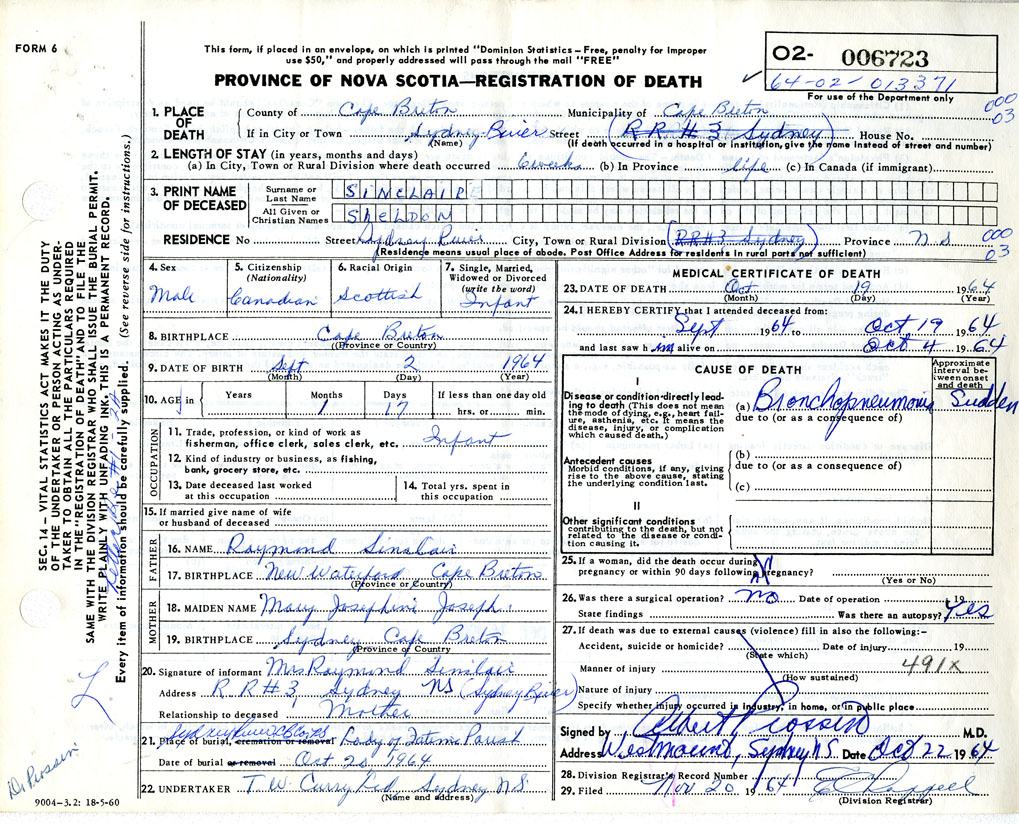 FORM 6
This form, if placed in an envelope, on which is printed "Dominion Statistics – Free, penalty for improper
use $50," and properly addressed will pass through the mail "FREE"
PROVINCE OF NOVA SCOTIA—REGISTRATION OF DEATH
02- 006723
64-02-013371
For use of the Department only
000
03
1. PLACE OF DEATH
County of Cape Breton Municipality of Cape Breton
If in City or Town Sydney River Street R R # 3 Sydney House No.
(Name) (If death occurred in a hospital or institution, give the name instead of street and number)
2. LENGTH OF STAY (in years, months and days)
(a) In City, Town or Rural Division where death occurred 6 weeks (b) In Province Life (c) In Canada (if immigrant)
3. PRINT NAME OF DECEASED
Surname or Last Name SINCLAIR
All Given or Christian Names SHELDON
RESIDENCE No Street Sydney River City, Town or Rural Division RR#3 Sydney Province N S
000
03
(Residence means usual place of abode. Post Office Address for residents in rural parts not sufficient)
4. Sex Male
5. Citizenship (Nationality) Canadian
6. Racial Origin Scottish
7. Single, Married, Widowed or Divorced (write the word) Infant
8. BIRTHPLACE Cape Breton
(Province or Country)
9. DATE OF BIRTH Sept 2 1964
(Month) (Day) (Year)
10. AGE Years Months Days If less than one day old
1 17 hrs. or min.
OCCUPATION
11. Trade, profession, or kind of work as
fisherman, office clerk, sales clerk, etc. Infant
12. Kind of industry or business, as fishing,
bank, grocery store, etc.
13. Date deceased last worked
at this occupation
14. Total yrs. spent in
this occupation
15. If married give name of wife
or husband of deceased
FATHER
16. NAME Raymond Sinclair
17. BIRTHPLACE New Waterford Cape Breton
(Province or Country)
MOTHER
18. MAIDEN NAME Mary Josephine Joseph
19. BIRTHPLACE Sydney Cape Breton
(Province or Country)
20. Signature of informant Mrs Raymond Sinclair
Address R R # 3, Sydney NS (Sydney River)
Relationship to deceased Mother
21. Place of burial, cremation or removal Lady of Fatima Parish
Date of burial or removal Oct 20 1964
22. UNDERTAKER T. W. Curry Ltd Sydney N.S.
(Name and address)
9004–3.2: 18-5-60
MEDICAL CERTIFICATE OF DEATH
23. DATE OF DEATH Oct 19 1964
(Month) (Day) (Year)
24. I HEREBY CERTIFY that I attended deceased from:
Sept 1964 to Oct 19 1964
and last saw him alive on Oct 4 1964
CAUSE OF DEATH
Approximate interval between onset and death
I
Disease or condition directly leading to death (This does not mean the mode of dying, e.g., heart failure, asthenia, etc. It means the disease, injury, or complication which caused death.)
(a) Bronchopneumonia Sudden
due to (or as a consequence of)
Antecedent causes
Morbid conditions, if any, giving rise to the above cause, stating the underlying condition last.
(b)
due to (or as a consequence of)
(c)
II
Other significant conditions
contributing to the death, but not related to the disease or condition causing it.
25. If a woman, did the death occur during
pregnancy or within 90 days following pregnancy?
(Yes or No)
26. Was there a surgical operation? no Date of operation 19
State findings Was there an autopsy? Yes
27. If death was due to external causes (violence) fill in also the following:–
Accident, suicide or homicide? Date of injury 19
(State which)
491X
Manner of injury
(How sustained)
Nature of injury
Specify whether injury occurred in industry, in home, or in public place
Signed by Albert Prossin M.D.
Address Westmount, Sydney NS Date Oct 22 1964
28. Division Registrar's Record Number
29. Filed Nov 20 1964
(Division Registrar)
SEC. 14 – VITAL STATISTICS ACT MAKES IT THE DUTY
OF THE UNDERTAKER OR PERSON ACTING AS UNDER-
TAKER TO OBTAIN ALL THE PARTICULARS REQUIRED
IN THE "REGISTRATION OF DEATH" AND TO FILE THE
SAME WITH THE DIVISION REGISTRAR WHO SHALL ISSUE THE BURIAL PERMIT.
WRITE PLAINLY WITH UNFADING INK, THIS IS A PERMANENT RECORD.
Every item of information should be carefully supplied. (See reverse side for instructions.)
L
Dr Prossin